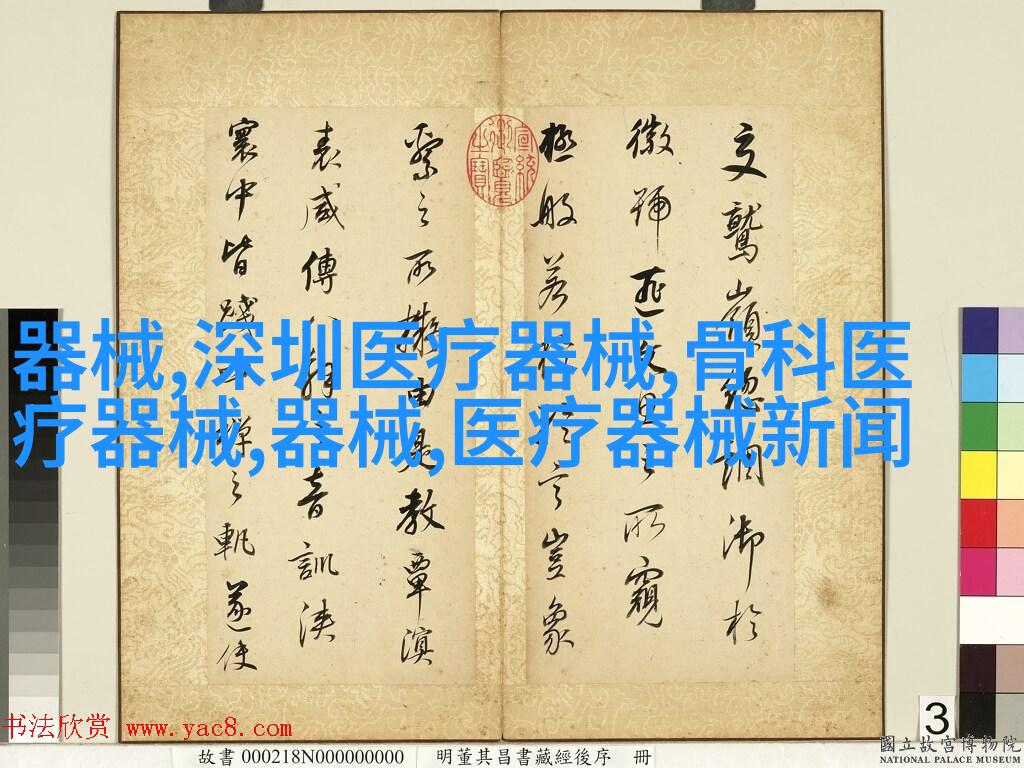 器械,深圳医疗器械,骨科医
疗器械,器械,医疗器械新闻
文鷲嶺總調御於
徽號匪之所窺
極般若言豈象
繫之所擬由是教覃溟
表咸傳音訓浹
寰中皆踐禪之軌遂使
宣統御覽之寶
书法欣赏 www.yac8.com
3
故書 000218N000000000
明董其昌書藏經後序 冊
國立故宮博物院
NATIONAL PALACE MUSEUM